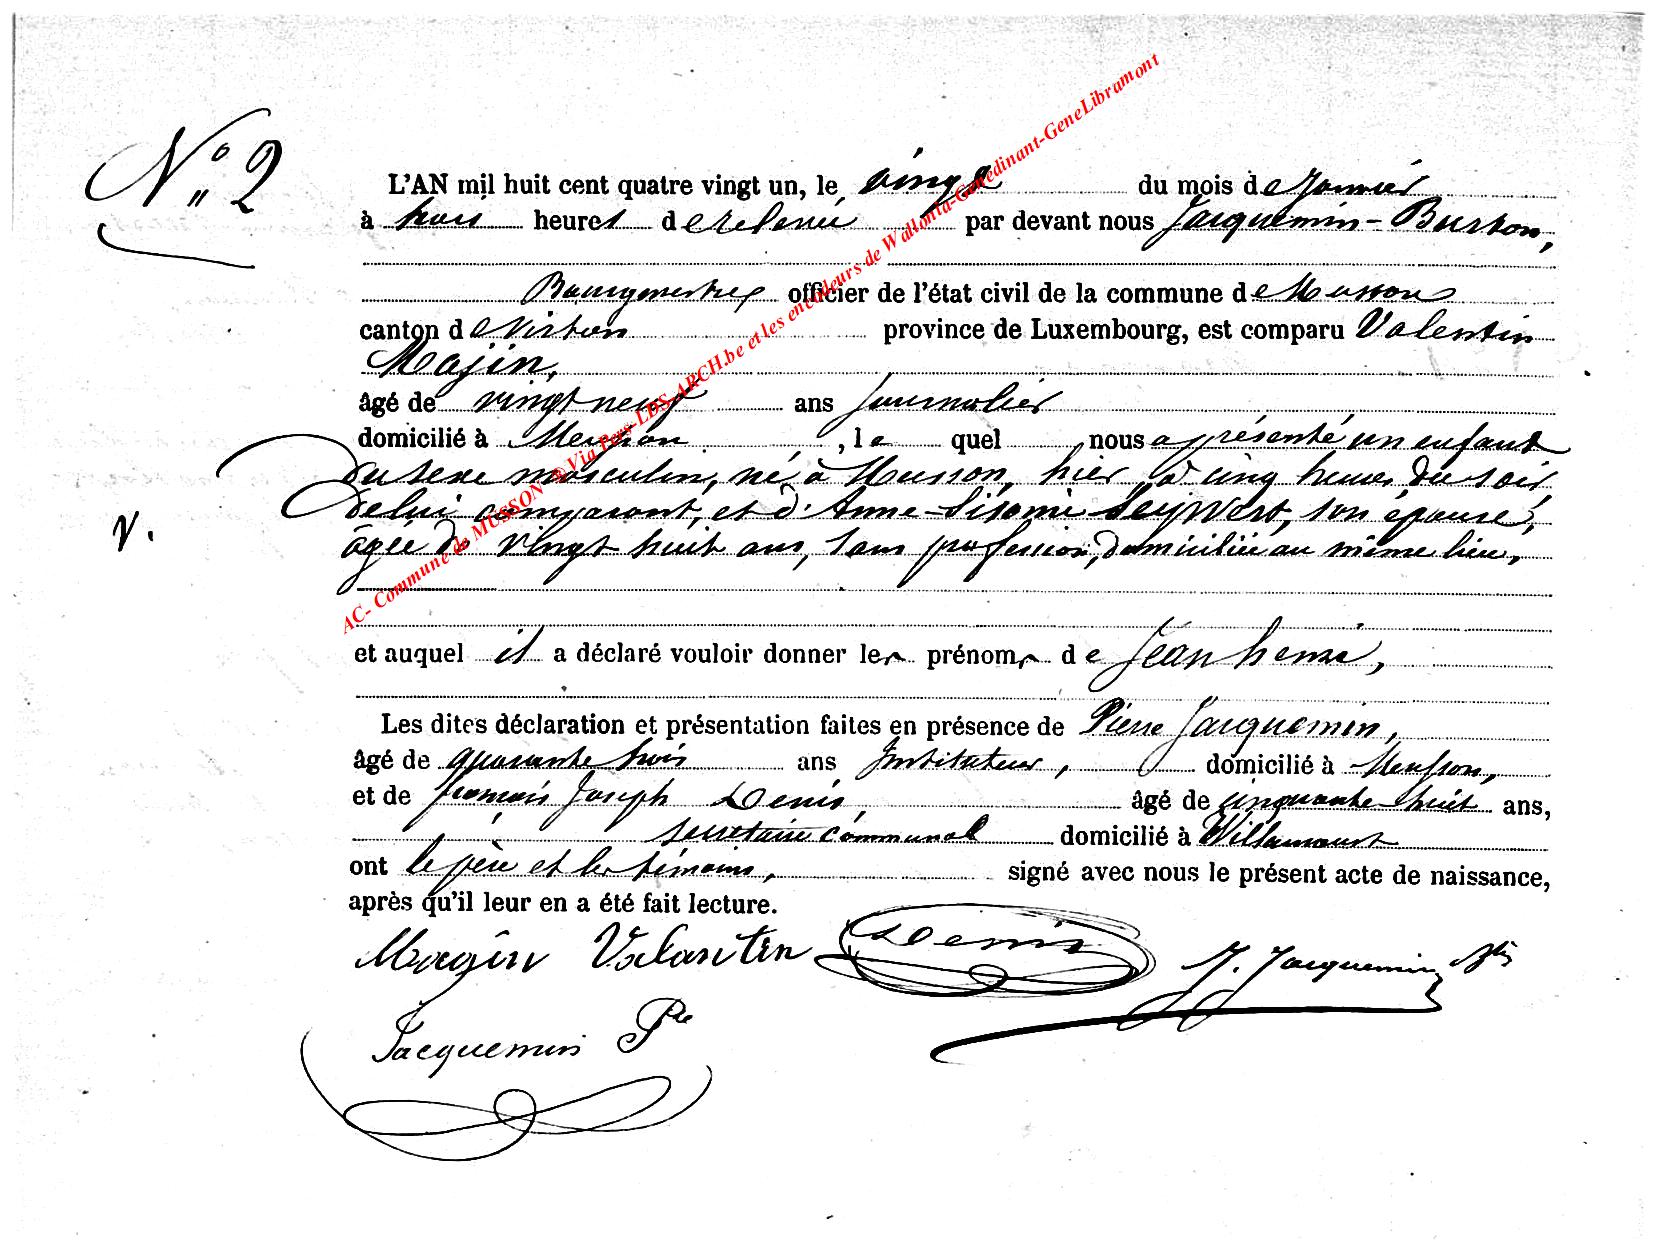 N° 2
L'AN mil huit cent quatre vingt un, le vingt du mois de Janvier
à trois heures de relevée par devant nous Jacquemin-Burton,
Bourgmestre officier de l'état civil de la commune de Musson
canton de Virton province de Luxembourg, est comparu Valentin
Majin,
âgé de vingt neuf ans Journalier
domicilié à Musson, lequel nous a présenté un enfant
du sexe masculin, né à Musson, hier, à cinq heures du soir
de lui comparant, et d'Anne- Seywert, son épouse,
âgée de vingt huit ans, sans profession, domiciliée au même lieu,
V.
et auquel il a déclaré vouloir donner les prénoms de Jean henri,
Les dites déclaration et présentation faites en présence de Pierre Jacquemin,
âgé de quarante trois ans Instituteur, domicilié à Musson,
et de françois Joseph Denis, âgé de cinquante-huit ans,
secrétaire communal domicilié à Willancourt
ont le père et les témoins, signé avec nous le présent acte de naissance,
après qu'il leur en a été fait lecture.
Magin Valantin Denis J. Jacquemin
Jacquemin Pre
AC- Commune de MUSSON @ Via Pers-LDS-ARCH.be et les encodeurs de Wallonia-Genedinant-GeneLibramont